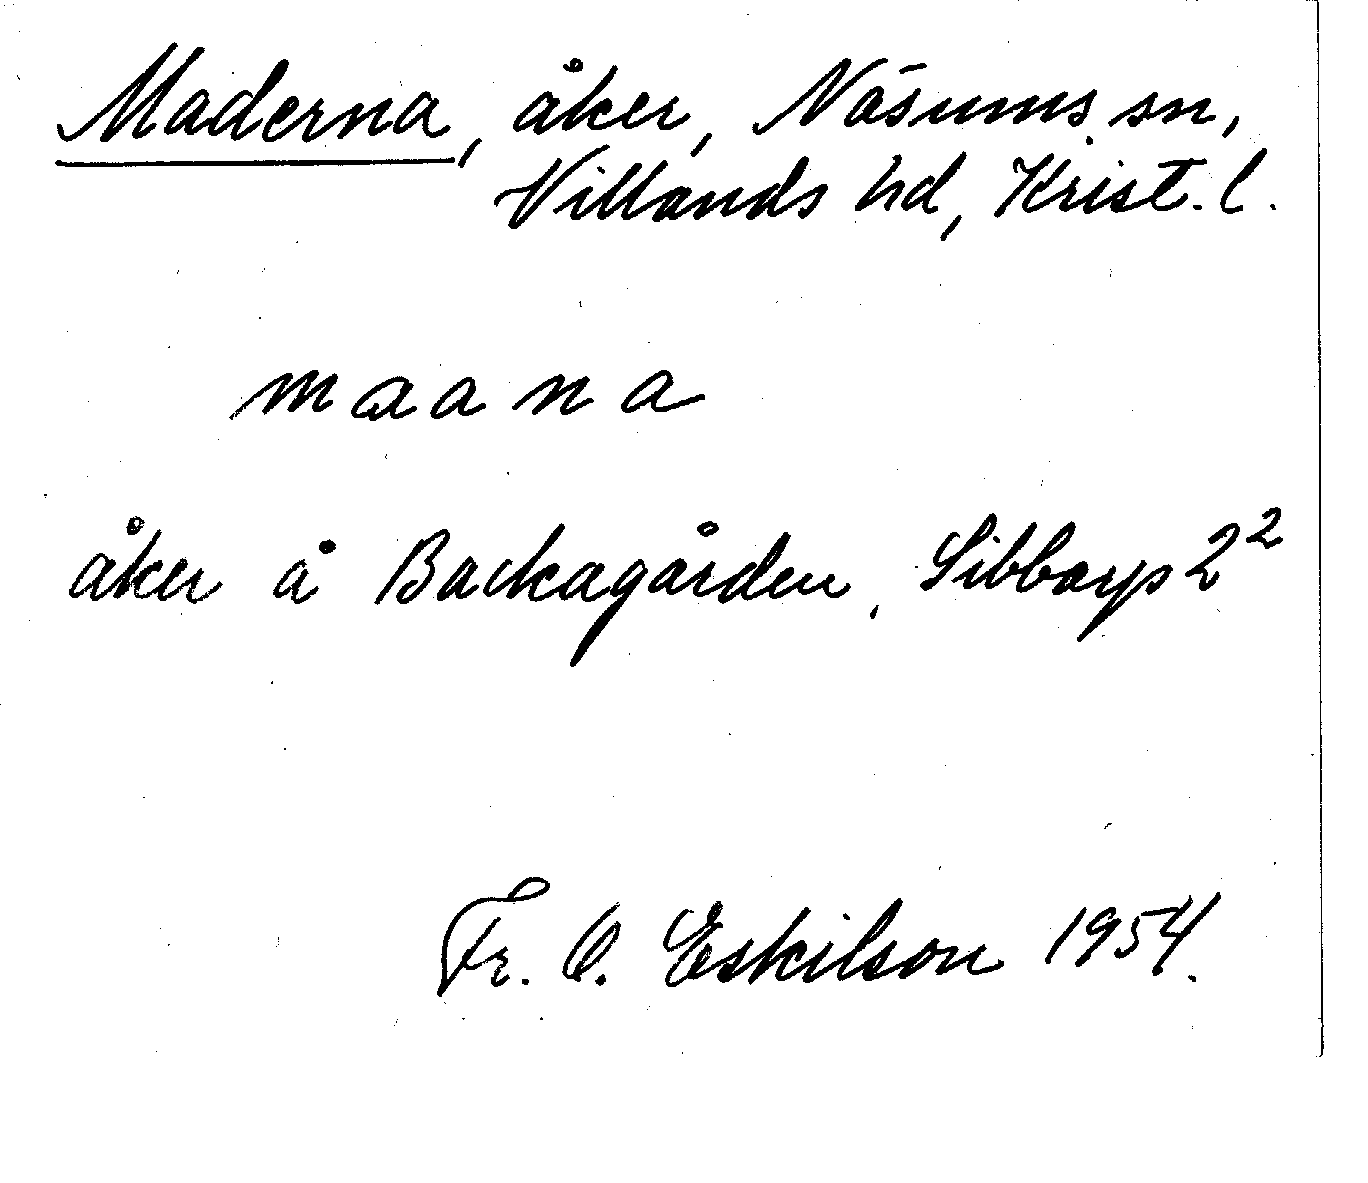 Maderna, åker, Näsums sn,
Villands hd, Krist. l.
maana
åker å Backagården, Sibbarp 2²
Fr. O. Eskilson 1954.